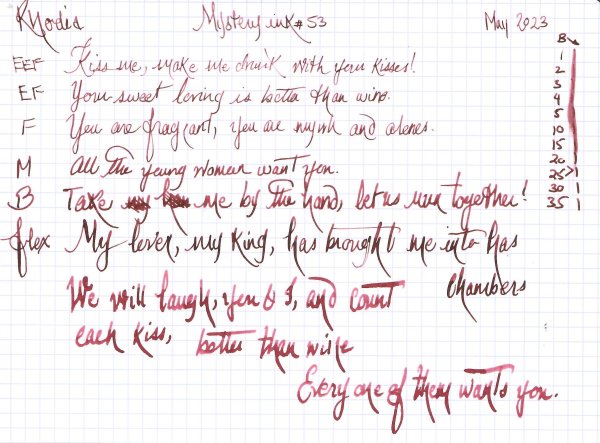 Rhodia Mystery ink #53 May 2023
EEF Kiss me, make me drunk with your kisses!
EF Your sweet loving is better than wine.
F You are fragrant, you are myrrh and aloes.
M All the young women want you.
B Take me by the hand, let us run together!
flex My lover, my king, has brought me into has
chambers
We will laugh, you & I, and count
each kiss, better than wine
Every one of them wants you.
B
1
2
3
4
5
10
15
20
25
30
35